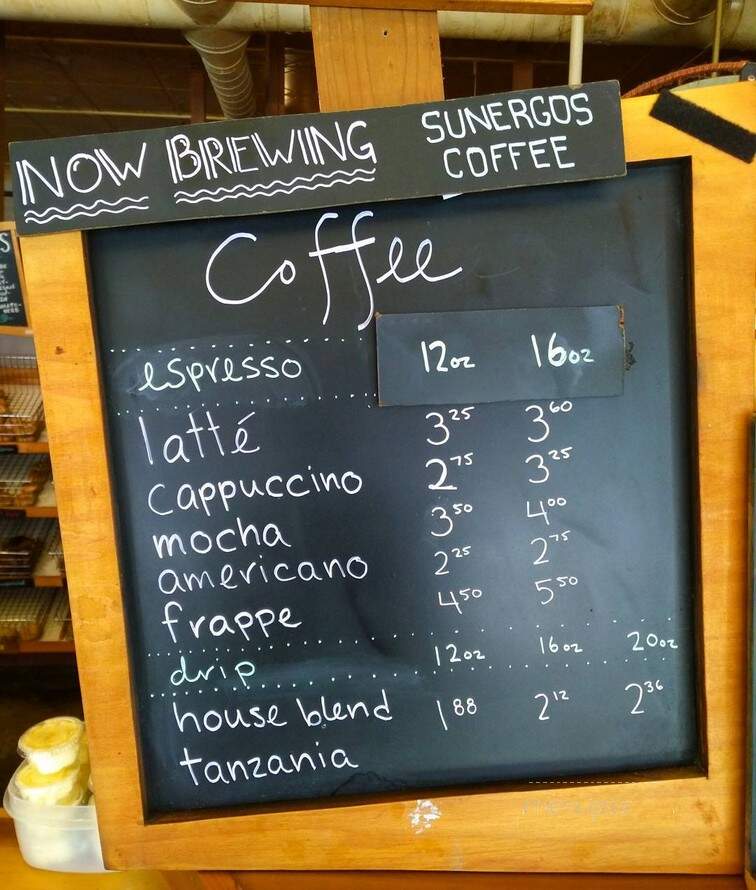 NOW BREWING SUNERGOS
COFFEE
Coffee
espresso 12oz 16oz
latté 3 25 3 60
cappuccino 2 75 3 25
mocha 3 50 4 00
americano 2 25 2 75
frappe 4 50 5 50
drip 12oz 16oz 20oz
house blend 1 88 2 12 2 36
tanzania